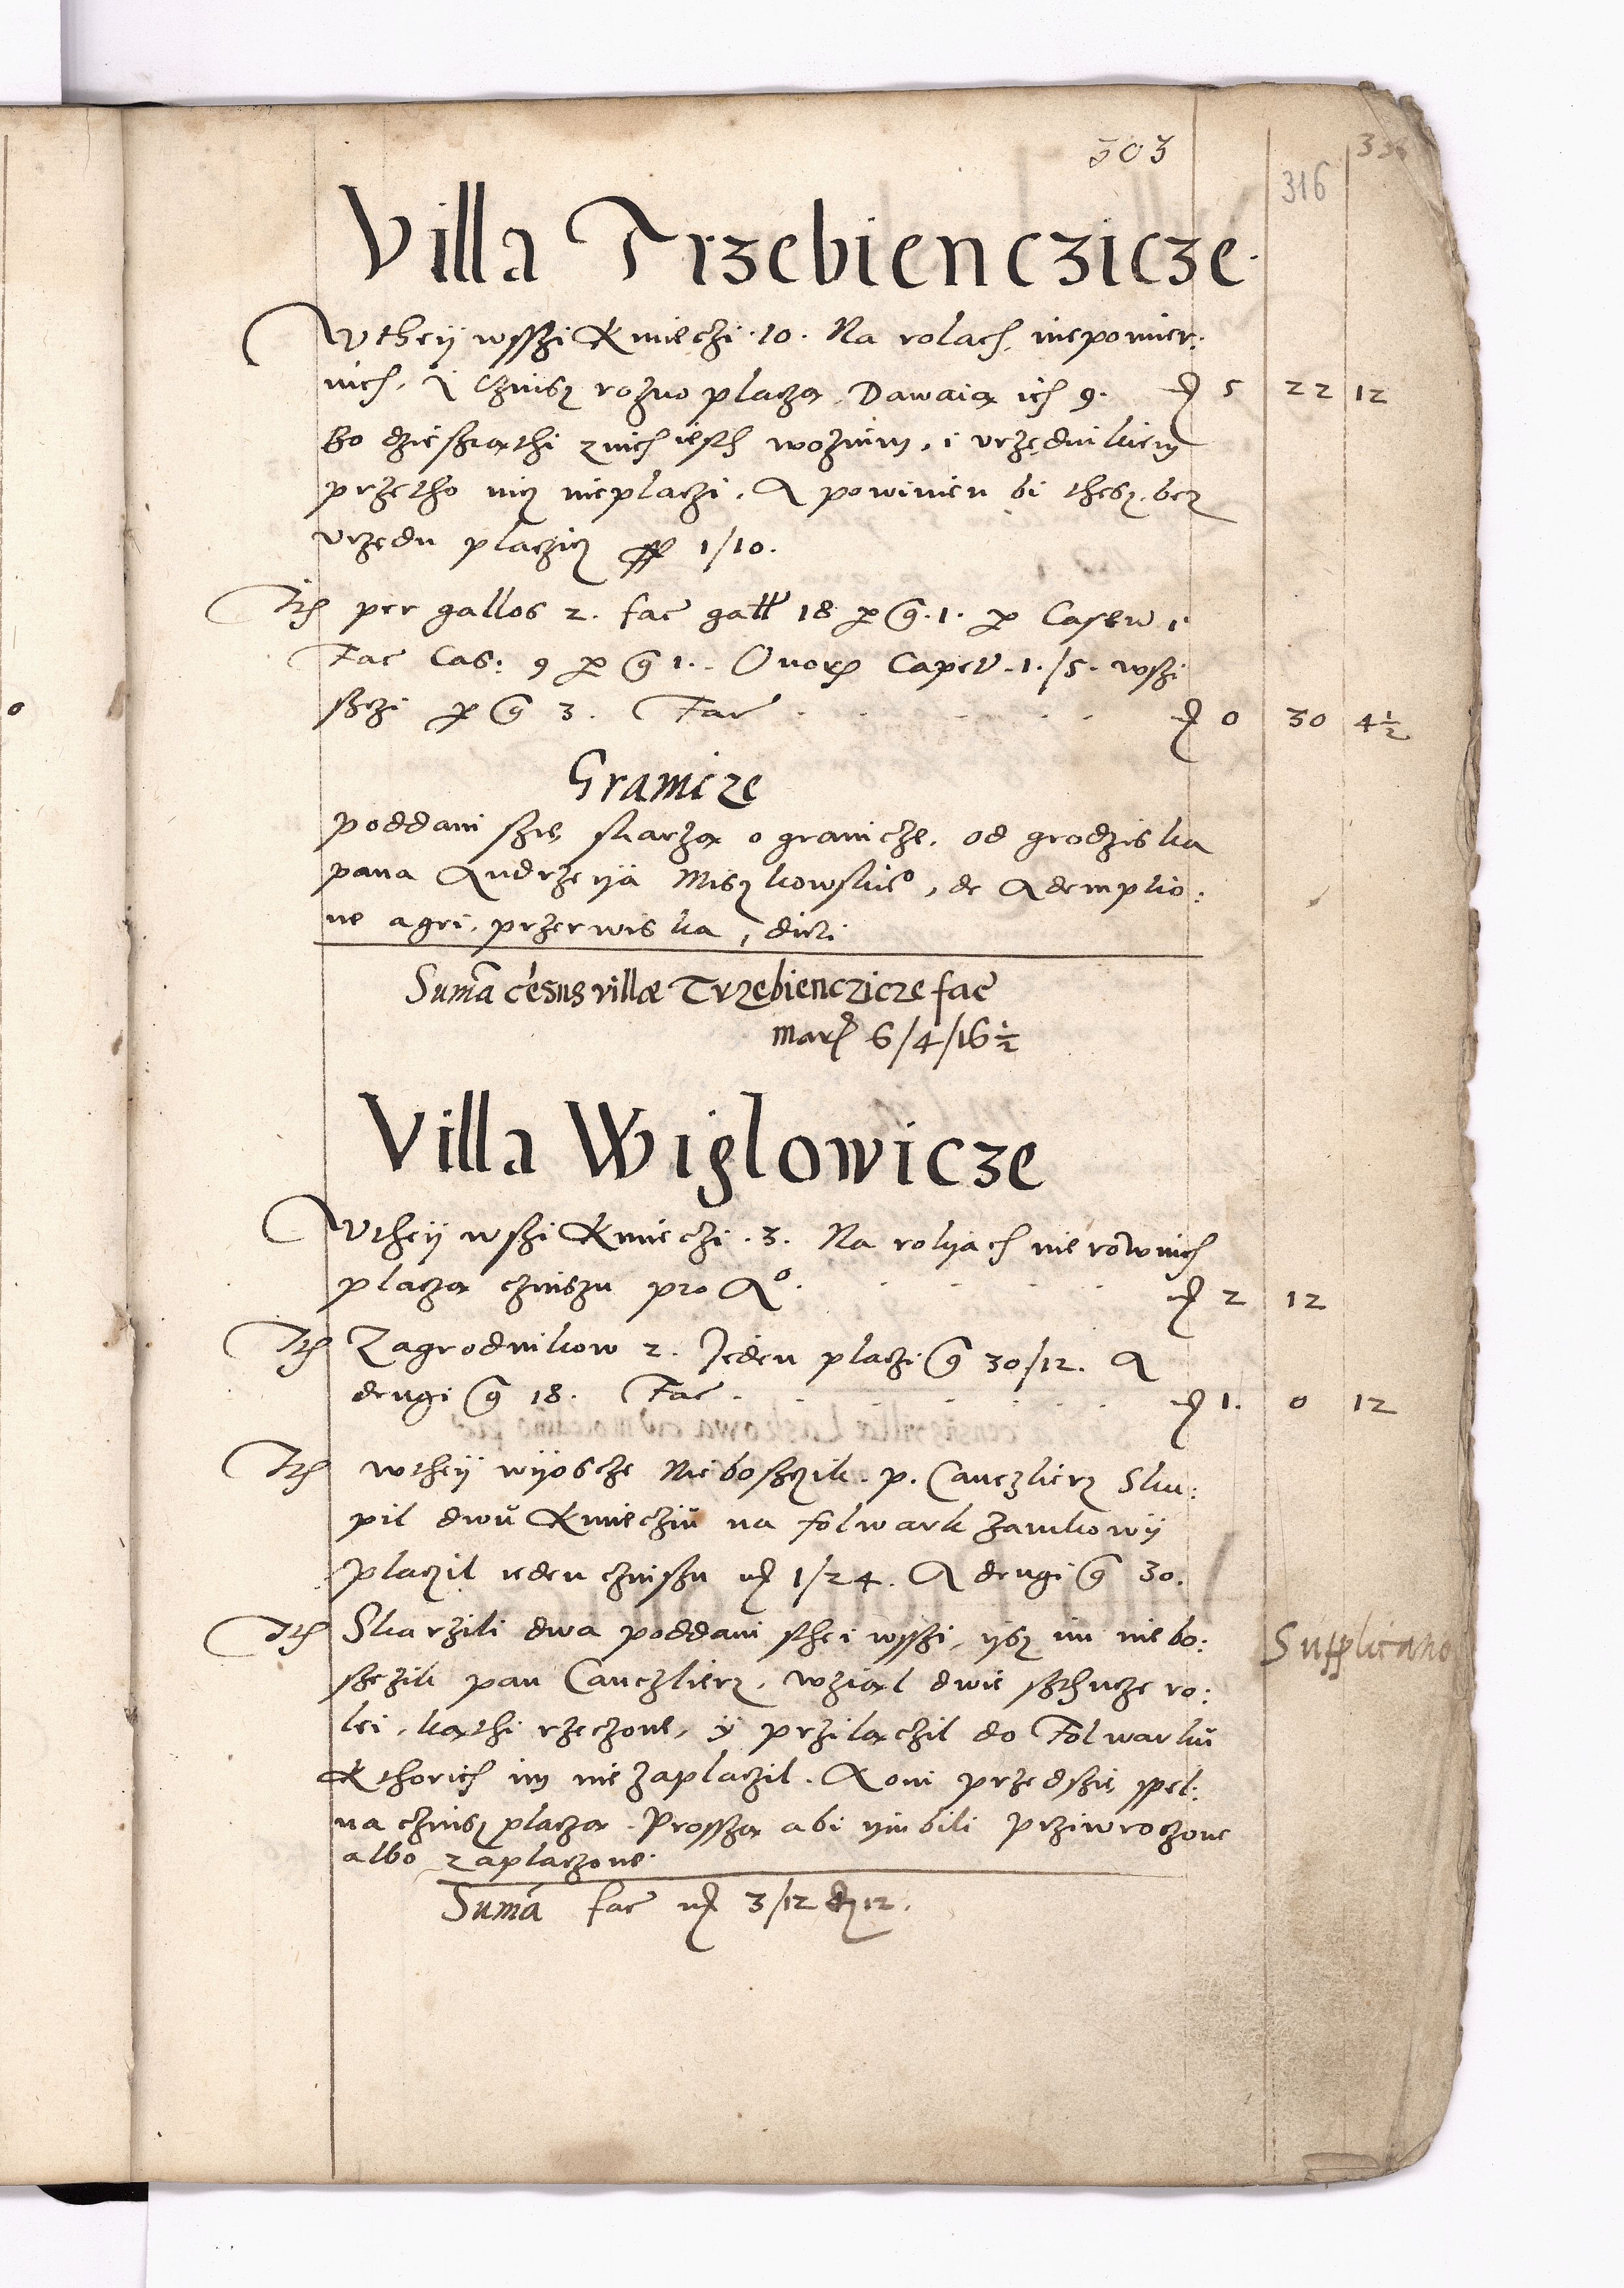 303
316
Villa Trzebienczicze
Wtheÿ wsszi Kmieczi 10. Na rolach niepomier:
nich. I Cznisz rozno placza. Dawaia ich 9. mrc 5 22 12
Bo dzieszxathi z nich iesth woznim, i vrzędnikiem
przetho nicz nieplaczi. A powinien bi thesz bez
vrzędu placzicz ff 1/10.
Ith per gallos 2. fac gall 18 per g. 1. per Caseu 1
Fac Cas: 9 per g 1. Ouorum Capet. 1./5. wszi
sthzi per g 3. Fac mrc 0 30 4½
Granicze
poddani szie skarza o granicze, od grodziska
pana Andrzeÿa Miszkowskieo, de Ademptio:
ne agri, przerwiska, dicti
Suma cesus villæ Trzebienczicze fac
marc 6/4/16½
Villa Wiglowicze
Wtheÿ wszi Kmieczi .3. Na rolÿach nierownich
placza czinszu pro Ao. mrc 2 12
Ith Zagrodnikow 2. Jeden placzi g 30/12. A
drugi g 18. Fac mrc 1. 0 12
Ith wtheÿ wÿoscze Nieboszczik p. Canczlierz Sku:
pil dwu Kmiecziu na folwark zamkowÿ
placzil ieden czinszu mrc 1/24. A drugi g 30.
Ith Skarzili dwa poddani sthei wsszi, ÿsz im niebo:
szczik pan Canczlierz, wzial dwie szthucze ro:
lei, kathi rzeczone, ÿ przilaczil do Folwarku
Kthorich im niezaplaczil. A oni przedszie spel:
na czinsz placza. Prossza abi ÿm bili przÿwroczone
albo zaplaczone.
Supplicatio
Suma fac mrc 3/12 d 12.